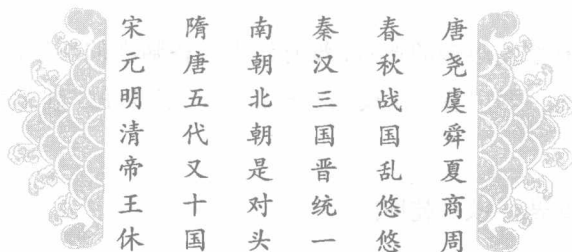 唐尧虞舜夏商周
春秋战国乱悠悠
秦汉三国晋统一
南朝北朝是对头
隋唐五代又十国
宋元明清帝王休